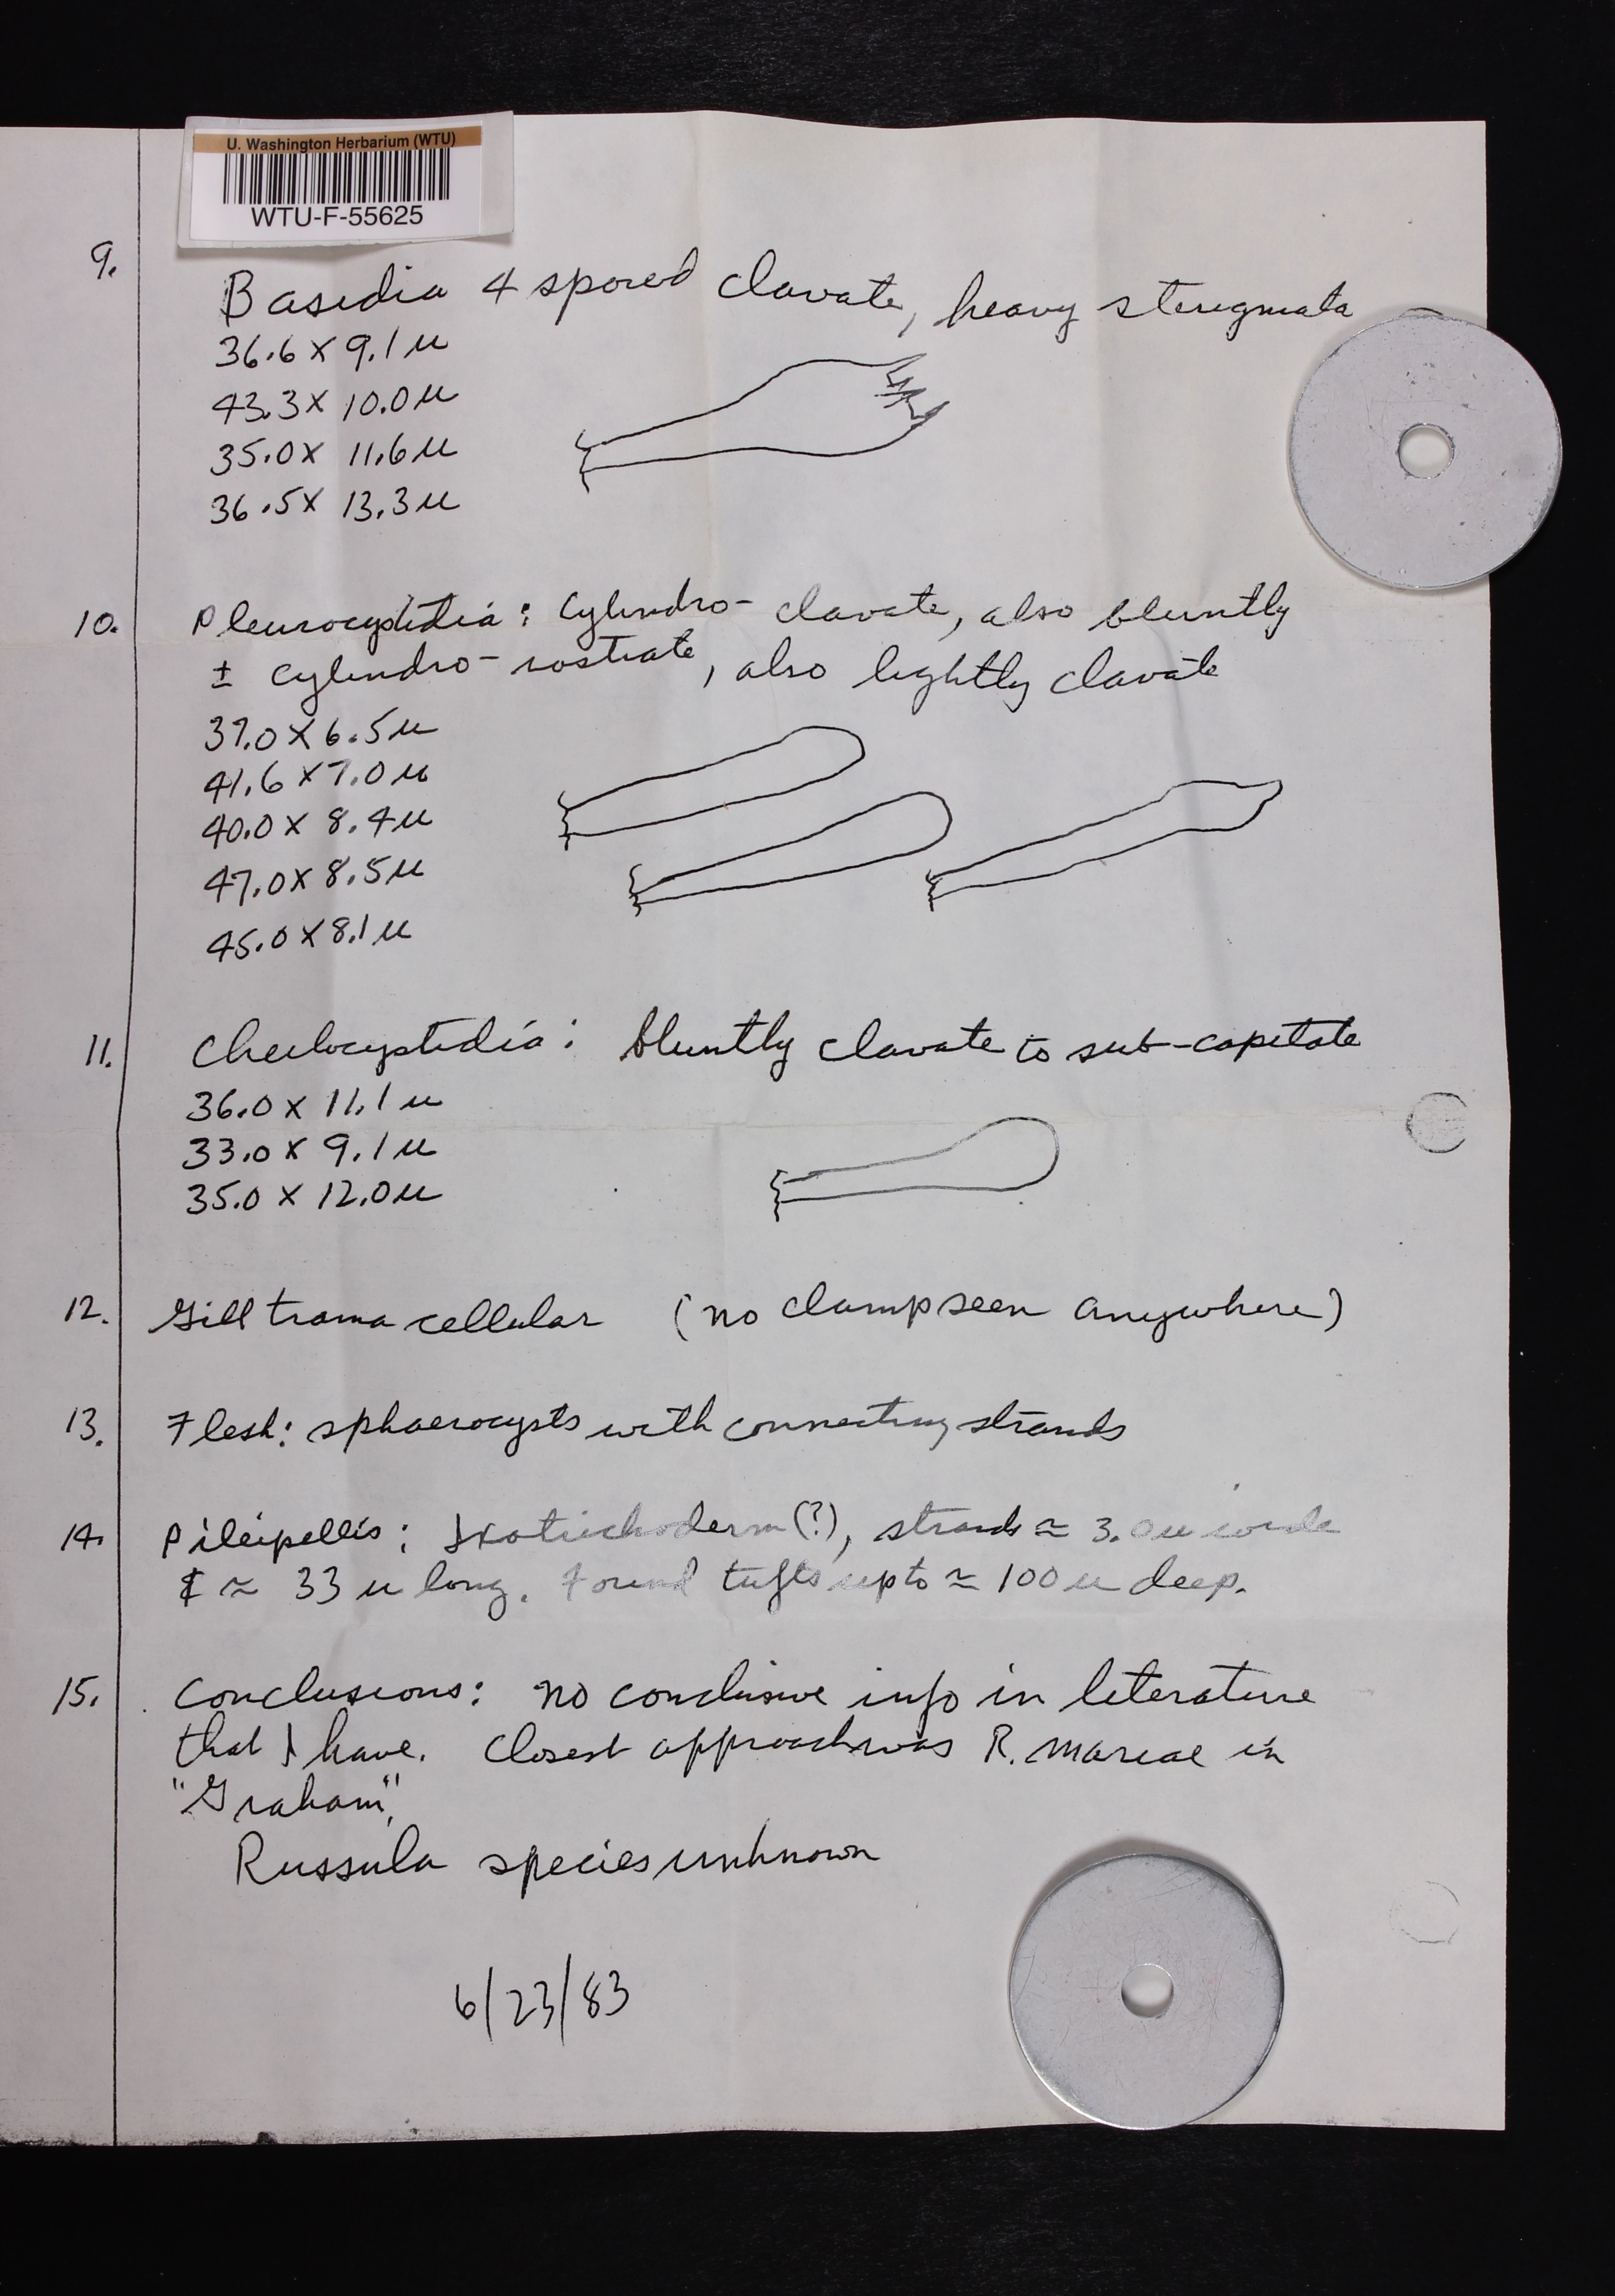 U. Washington Herbarium (WTU)
WTU-F-55625
9.
Basidia 4 spored clavate, heavy sterigmata
36.6 x 9.1 u
43.3 x 10.0 u
35.0 x 11.6 u
36.5 x 13.3 u
10. Pleurocystidia: Cylindro- clavate, also bluntly
± cylindro-rostrate, also lightly clavate
37.0 x 6.5 u
41.6 x 7.0 u
40.0 x 8.4 u
47.0 x 8.5 u
45.0 x 8.1 u
11. Cheilocystidia: bluntly clavate to sub-capitate
36.0 x 11.1 u
33.0 x 9.1 u
35.0 x 12.0 u
12. Gill trama cellular (no clamp seen anywhere)
13. Flesh: sphaerocysts with connecting strands
14. Pileipellis: Ixotrichoderm(?), strands ≈ 3.0 u wide
& ≈ 33 u long. Found tufts up to ≈ 100 u deep.
15. Conclusions: no conclusive info in literature
that I have. Closest approach was R. mariae in
"Graham".
Russula species unknown
6/23/83